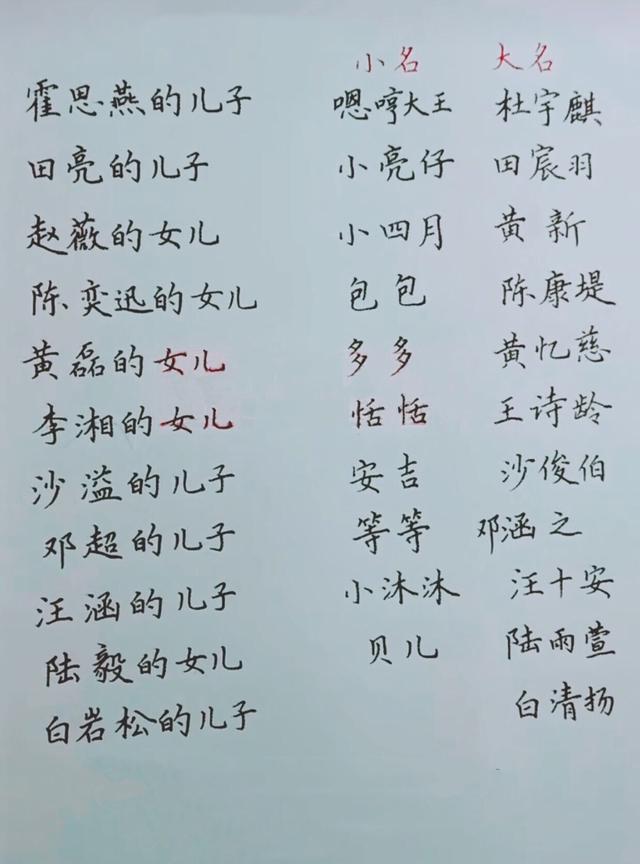 小名 大名
霍思燕的儿子 嗯哼大王 杜宇麒
田亮的儿子 小亮仔 田宸羽
赵薇的女儿 小四月 黄新
陈奕迅的女儿 包包 陈康堤
黄磊的女儿 多多 黄忆慈
李湘的女儿 恬恬 王诗龄
沙溢的儿子 安吉 沙俊伯
邓超的儿子 等等 邓涵之
汪涵的儿子 小沐沐 汪十安
陆毅的女儿 贝儿 陆雨萱
白岩松的儿子 白清扬